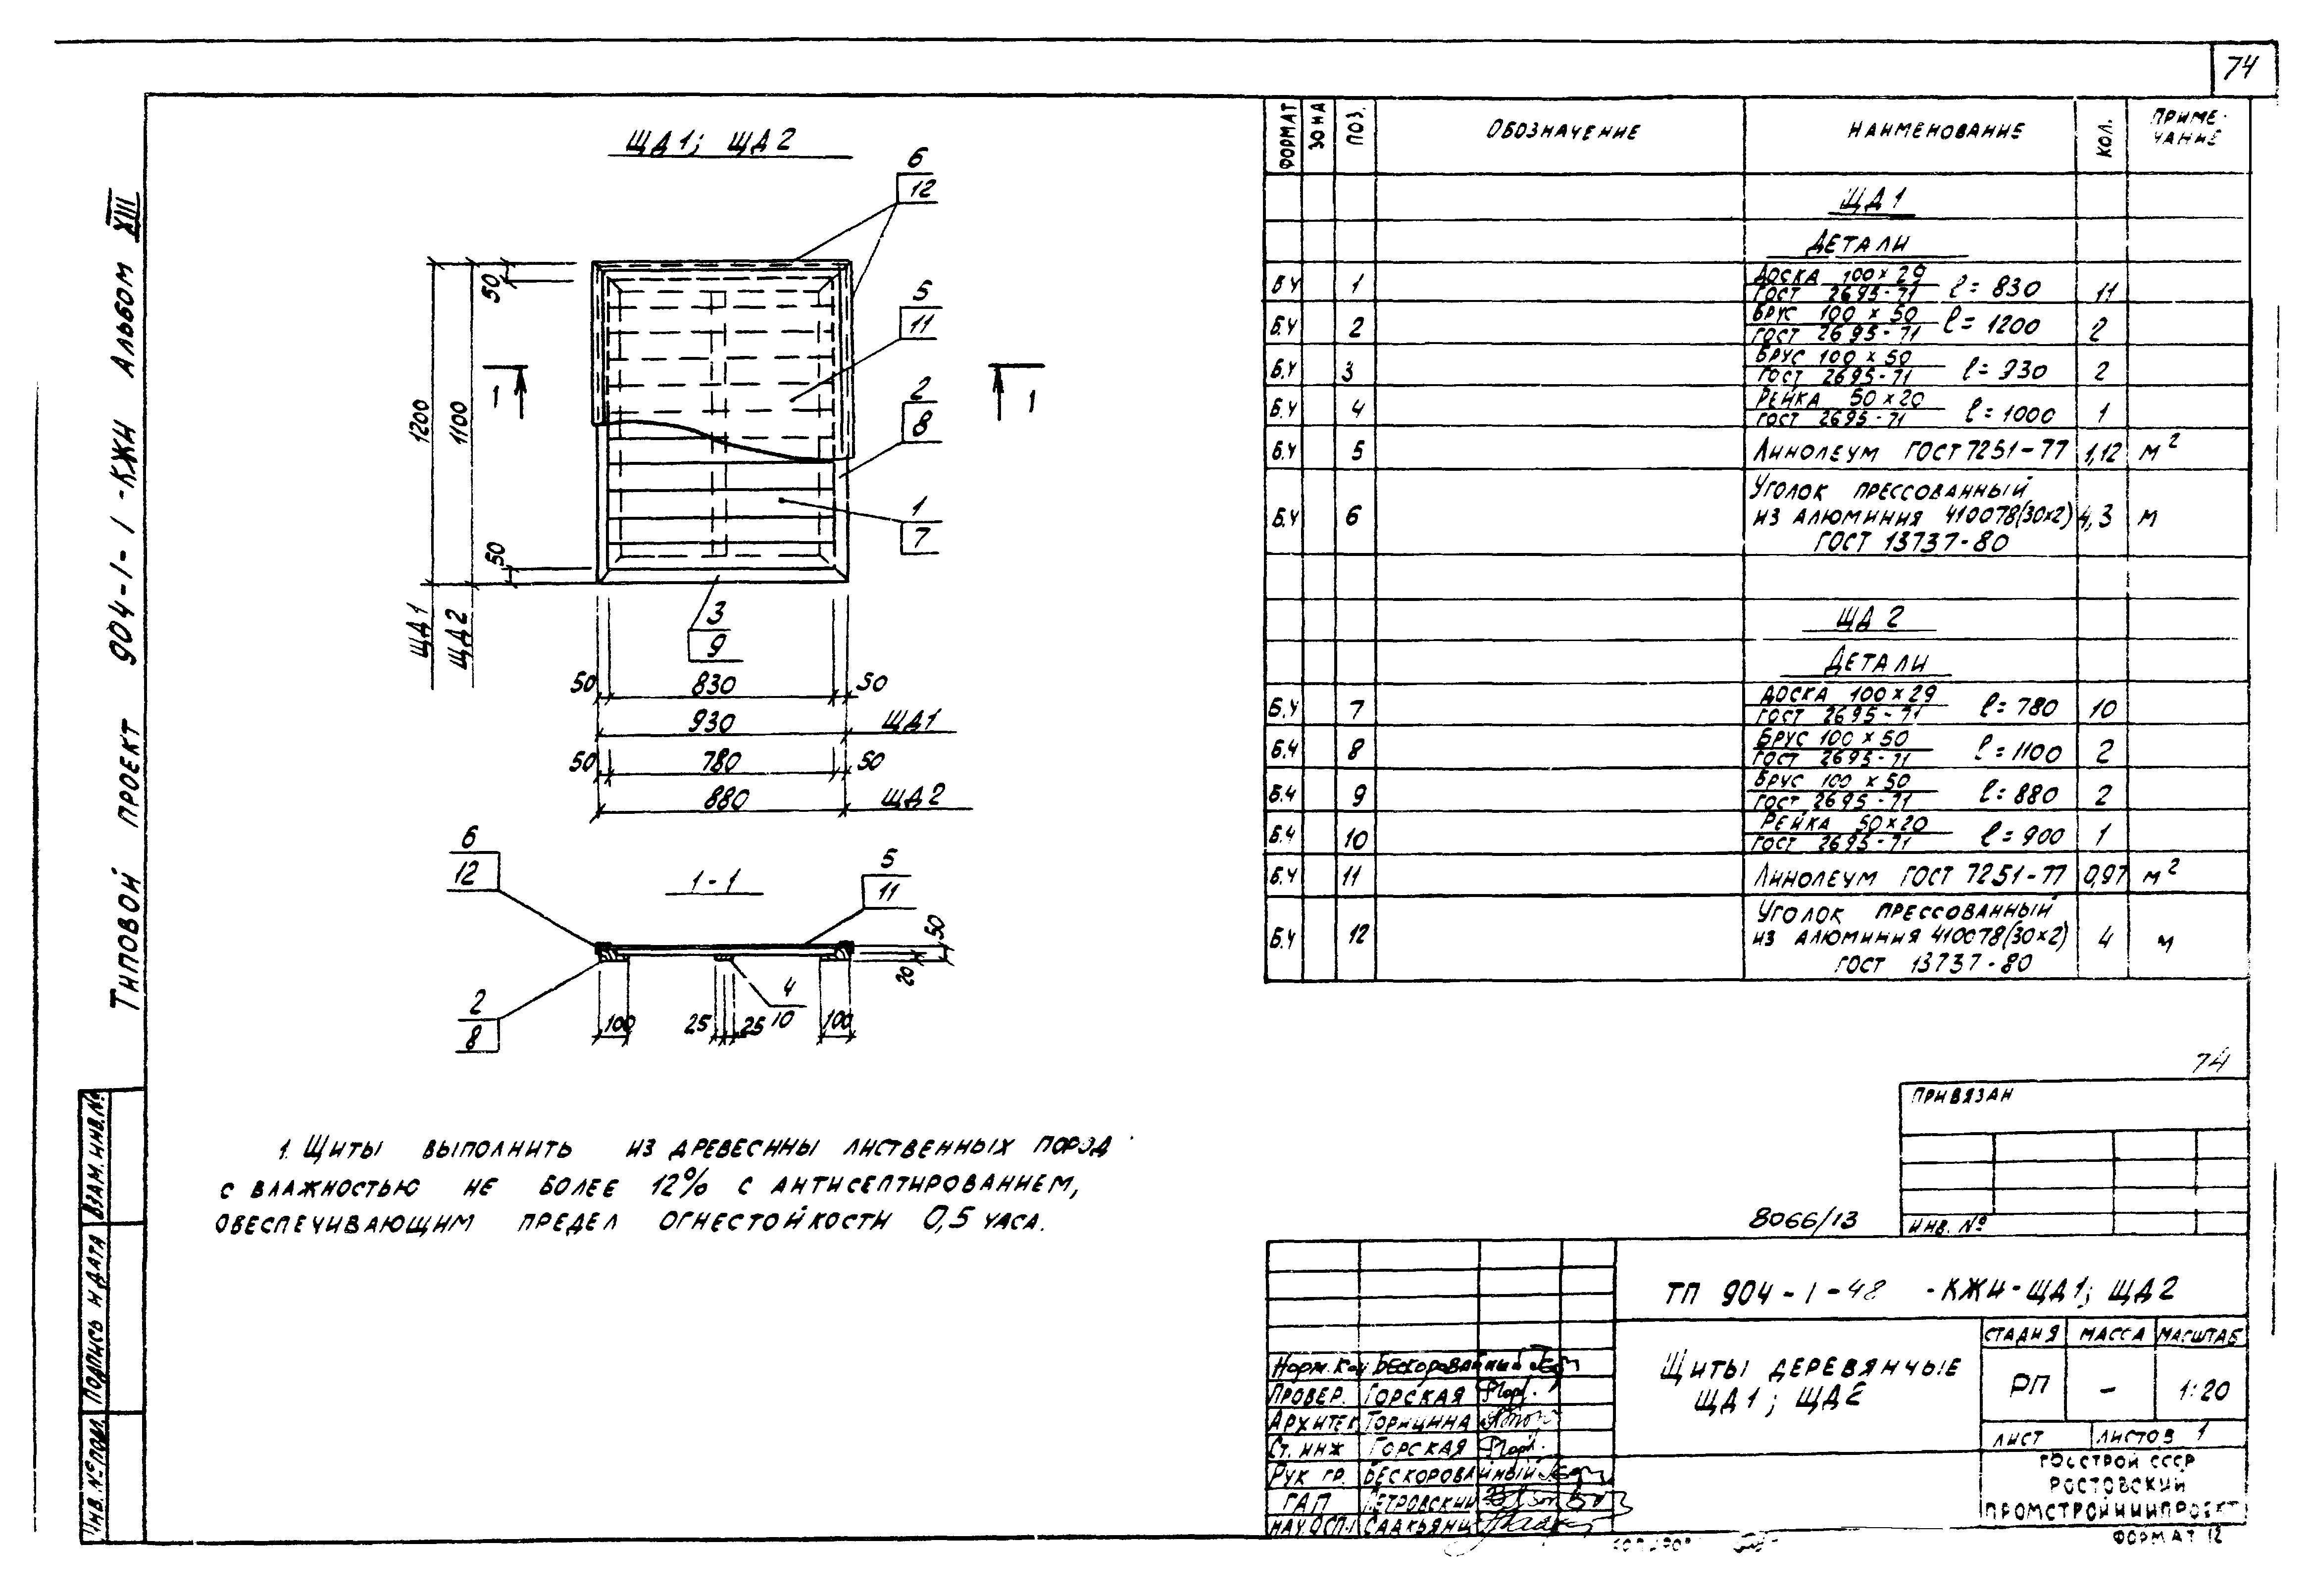 74
Типовой проект 904-1-1 -КЖИ Альбом XIII
ЩД1; ЩД2
6
12
5
11
2
8
1
7
3
9
50
1200
1100
50
ЩД1
ЩД2
1
1
50 830 50
930 ЩД1
50 780 50
880 ЩД2
1-1
6
12
5
11
2
8
4
10
100 25 25 100
20
50
1. Щиты выполнить из древесины лиственных пород
с влажностью не более 12% с антисептированием,
обеспечивающим предел огнестойкости 0,5 часа.
Формат Зона Поз. Обозначение Наименование Кол. Примечание
ЩД1
Детали
Б.Ч 1 Доска 100×29 ГОСТ 2695-71 ℓ=830 11
Б.Ч 2 Брус 100×50 ГОСТ 2695-71 ℓ=1200 2
Б.Ч 3 Брус 100×50 ГОСТ 2695-71 ℓ=930 2
Б.Ч 4 Рейка 50×20 ГОСТ 2695-71 ℓ=1000 1
Б.Ч 5 Линолеум ГОСТ 7251-77 1,12 м²
Б.Ч 6 Уголок прессованный
из алюминия 410078(30×2) 4,3 м
ГОСТ 13737-80
ЩД2
Детали
Б.Ч 7 Доска 100×29 ГОСТ 2695-71 ℓ=780 10
Б.Ч 8 Брус 100×50 ГОСТ 2695-71 ℓ=1100 2
Б.Ч 9 Брус 100×50 ГОСТ 2695-71 ℓ=880 2
Б.Ч 10 Рейка 50×20 ГОСТ 2695-71 ℓ=900 1
Б.Ч 11 Линолеум ГОСТ 7251-77 0,97 м²
Б.Ч 12 Уголок прессованный
из алюминия 410078(30×2) 4 м
ГОСТ 13737-80
74
Привязан
Инв. №
8066/13
ТП 904-1-48 -КЖИ-ЩД1; ЩД2
Щиты деревянные
ЩД1; ЩД2
Стадия Масса Масштаб
РП - 1:20
Лист Листов 1
Госстрой СССР
Ростовский
Промстройниипроект
Формат 12
Норм.кон Бескоровайный
Провер. Горская
Архитек
Ст. инж Горская
Рук гр. Бескоровайный
ГАП Петровский
Взам. инв. №
Подпись и дата
Инв. № подл.